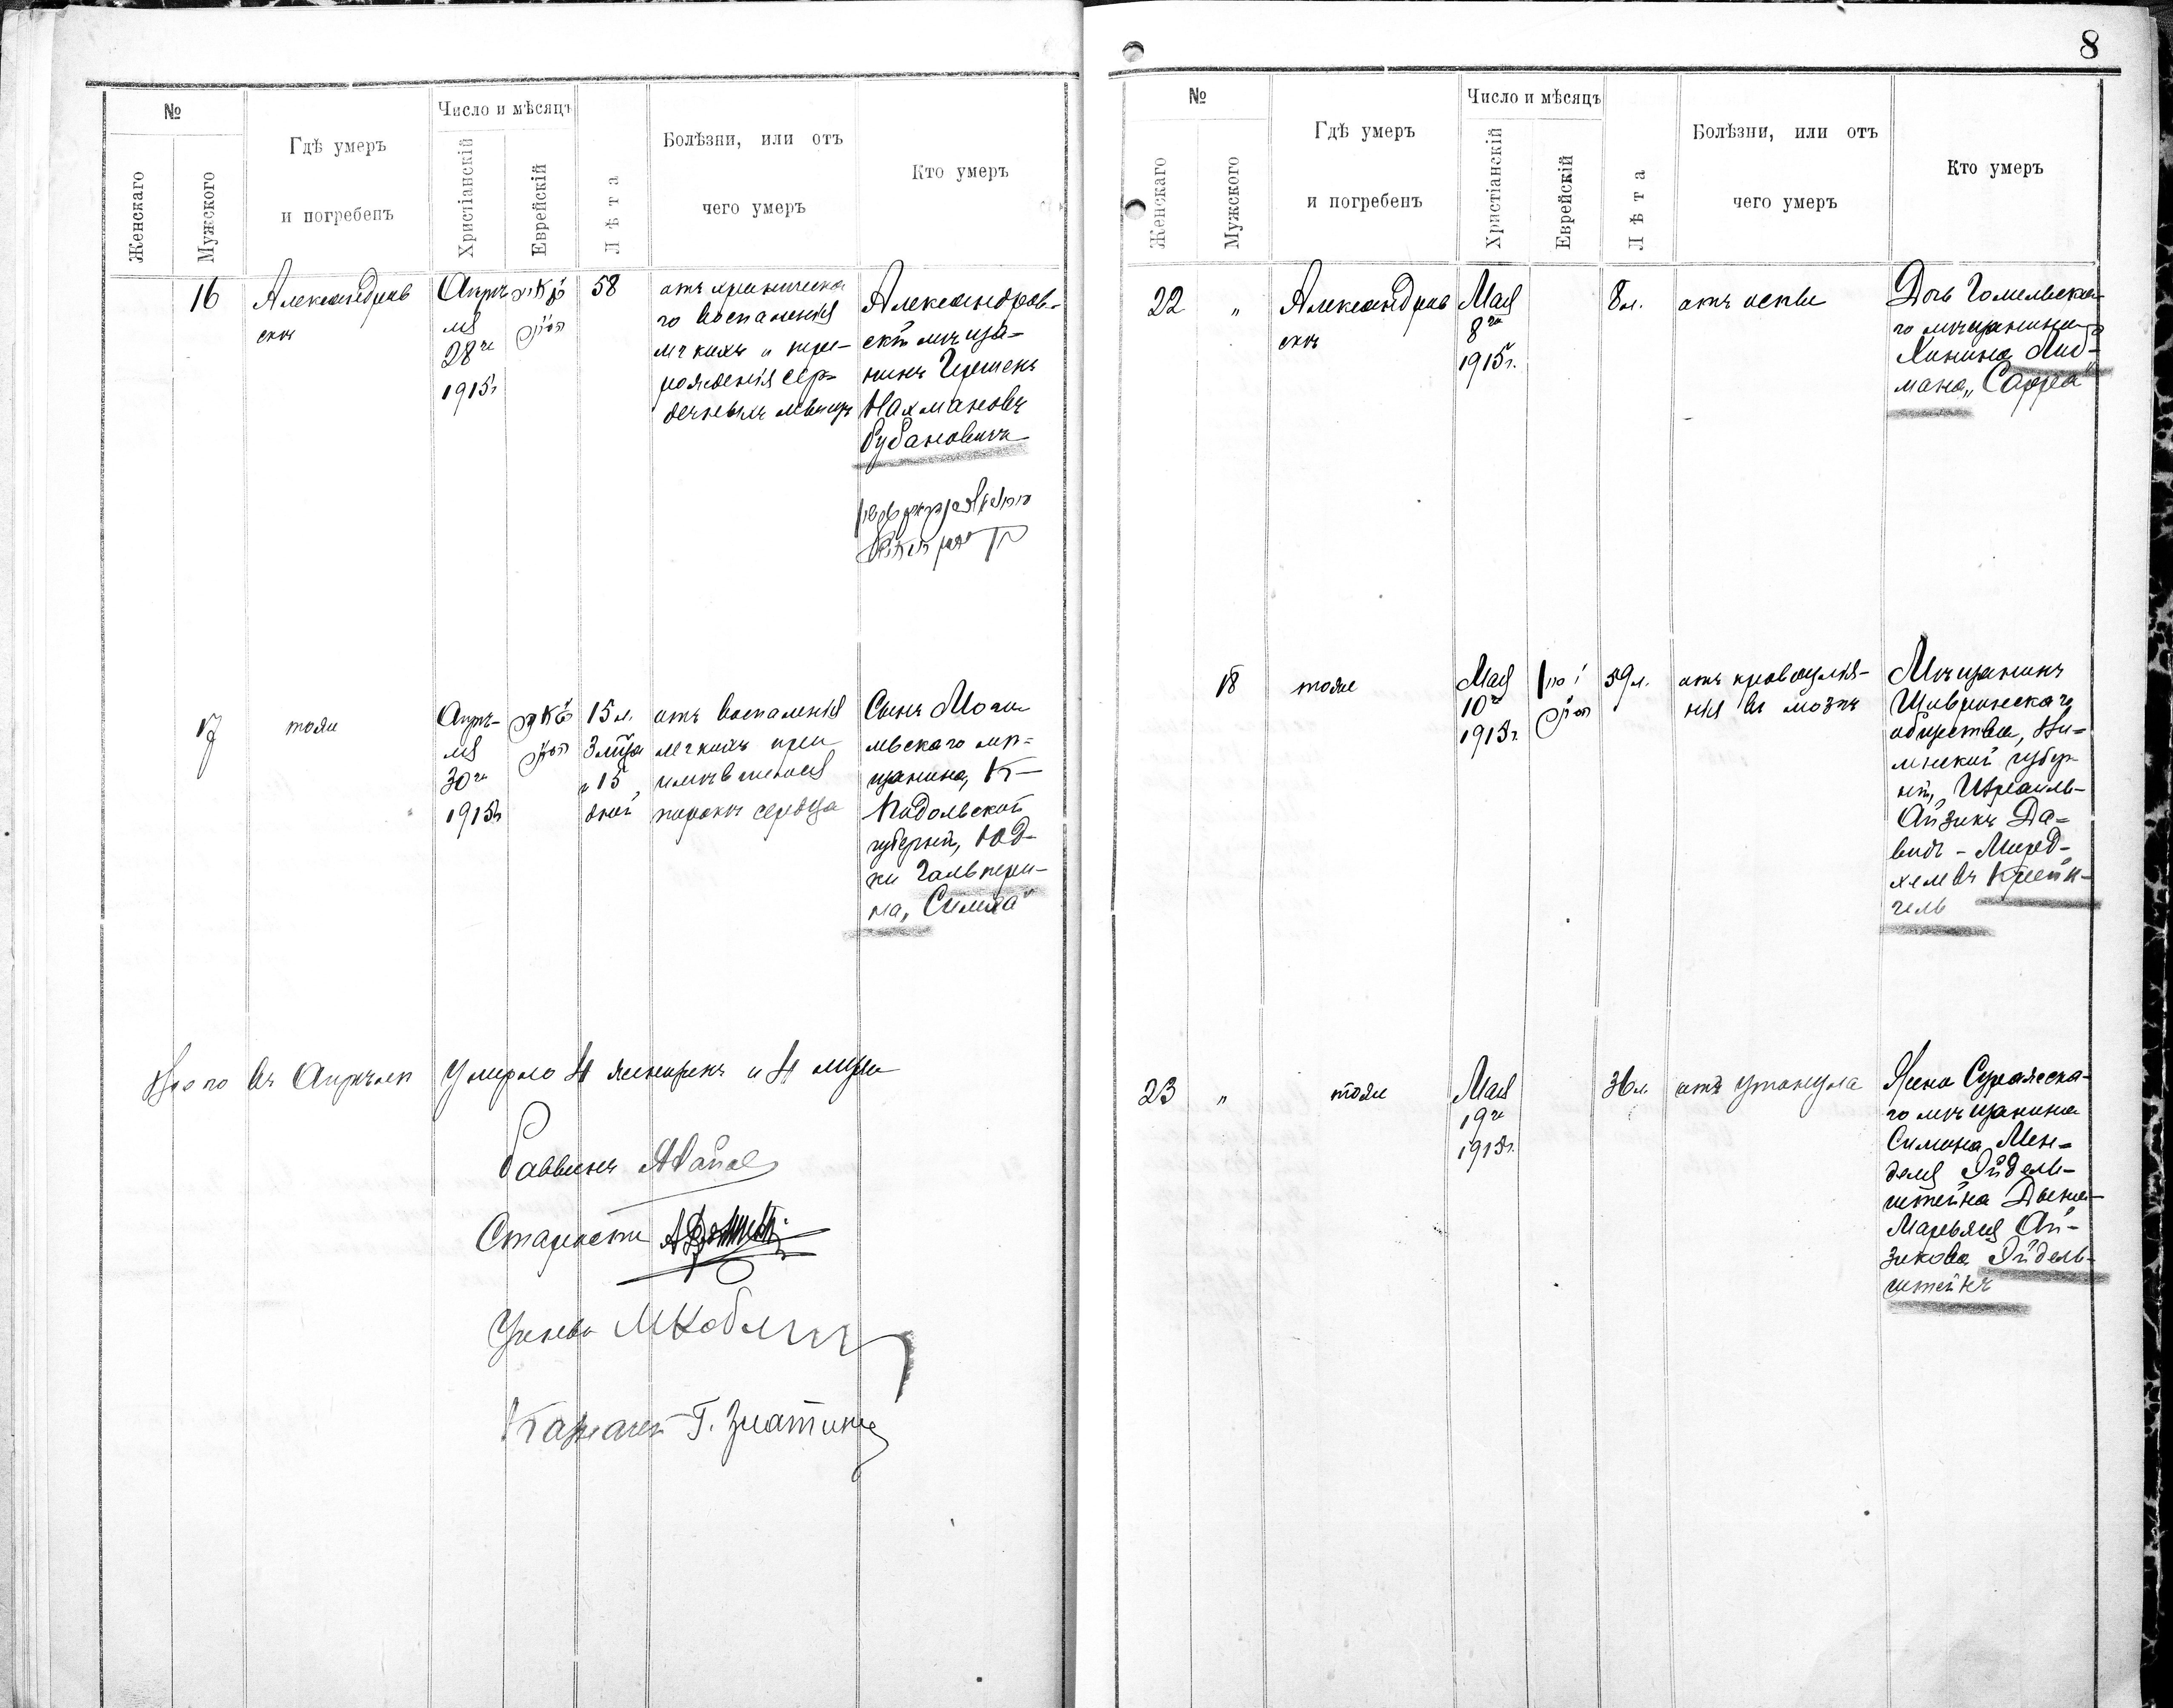 №
Женскаго
Мужского
Гдѣ умеръ
и погребенъ
Число и мѣсяцъ
Христіанскій
Еврейскій
Лѣта
Болѣзни, или отъ
чего умеръ
Кто умеръ
16
Александров
скъ
Апрѣ
ля
28го
1915г
58
отъ хроническа
го воспаленія
легкихъ и пере-
рожденія сер-
дечныхъ мышцъ
Александров-
скій мѣща-
нинъ Гершенъ
Нахмановъ
Рубановичъ
17
тоже
Апрѣ-
ля
30го
1915г
15 л.
3 мца
и 15
дней
отъ воспаленія
легкихъ при
имѣвшемся
порокѣ сердца
Сынъ Моги-
левскаго мѣ-
щанина,
Подольской
губерніи, Юд-
ки Гальпери-
на, „Симха"
Всего въ Апрѣлѣ умерло 4 женщинъ и 4 мущи
Раввинъ
Староста
Ученый
Казначей Г. Златинъ
8
№
Женскаго
Мужского
Гдѣ умеръ
и погребенъ
Число и мѣсяцъ
Христіанскій
Еврейскій
Лѣта
Болѣзни, или отъ
чего умеръ
Кто умеръ
22
"
Александров
скъ
Мая
8го
1915г.
8л.
отъ оспы
Дочь Гомельска-
го мѣщанина
Хонина Либ-
мана „Сарра"
18
тоже
Мая
10го
1915г.
59л.
отъ кровоизлія-
нія въ мозгъ
Мѣщанинъ
общества, Ви-
ленской губер-
ніи, Израиль-
Айзикъ Да-
видъ-
23
"
тоже
Мая
19го
1915г.
36л.
отъ утонула
Жена Суражска-
го мѣщанина
Симона Мен-
деля Эйдель-
штейна Двейра-
Марьяся Ай-
зикова Эйдель-
штейнъ